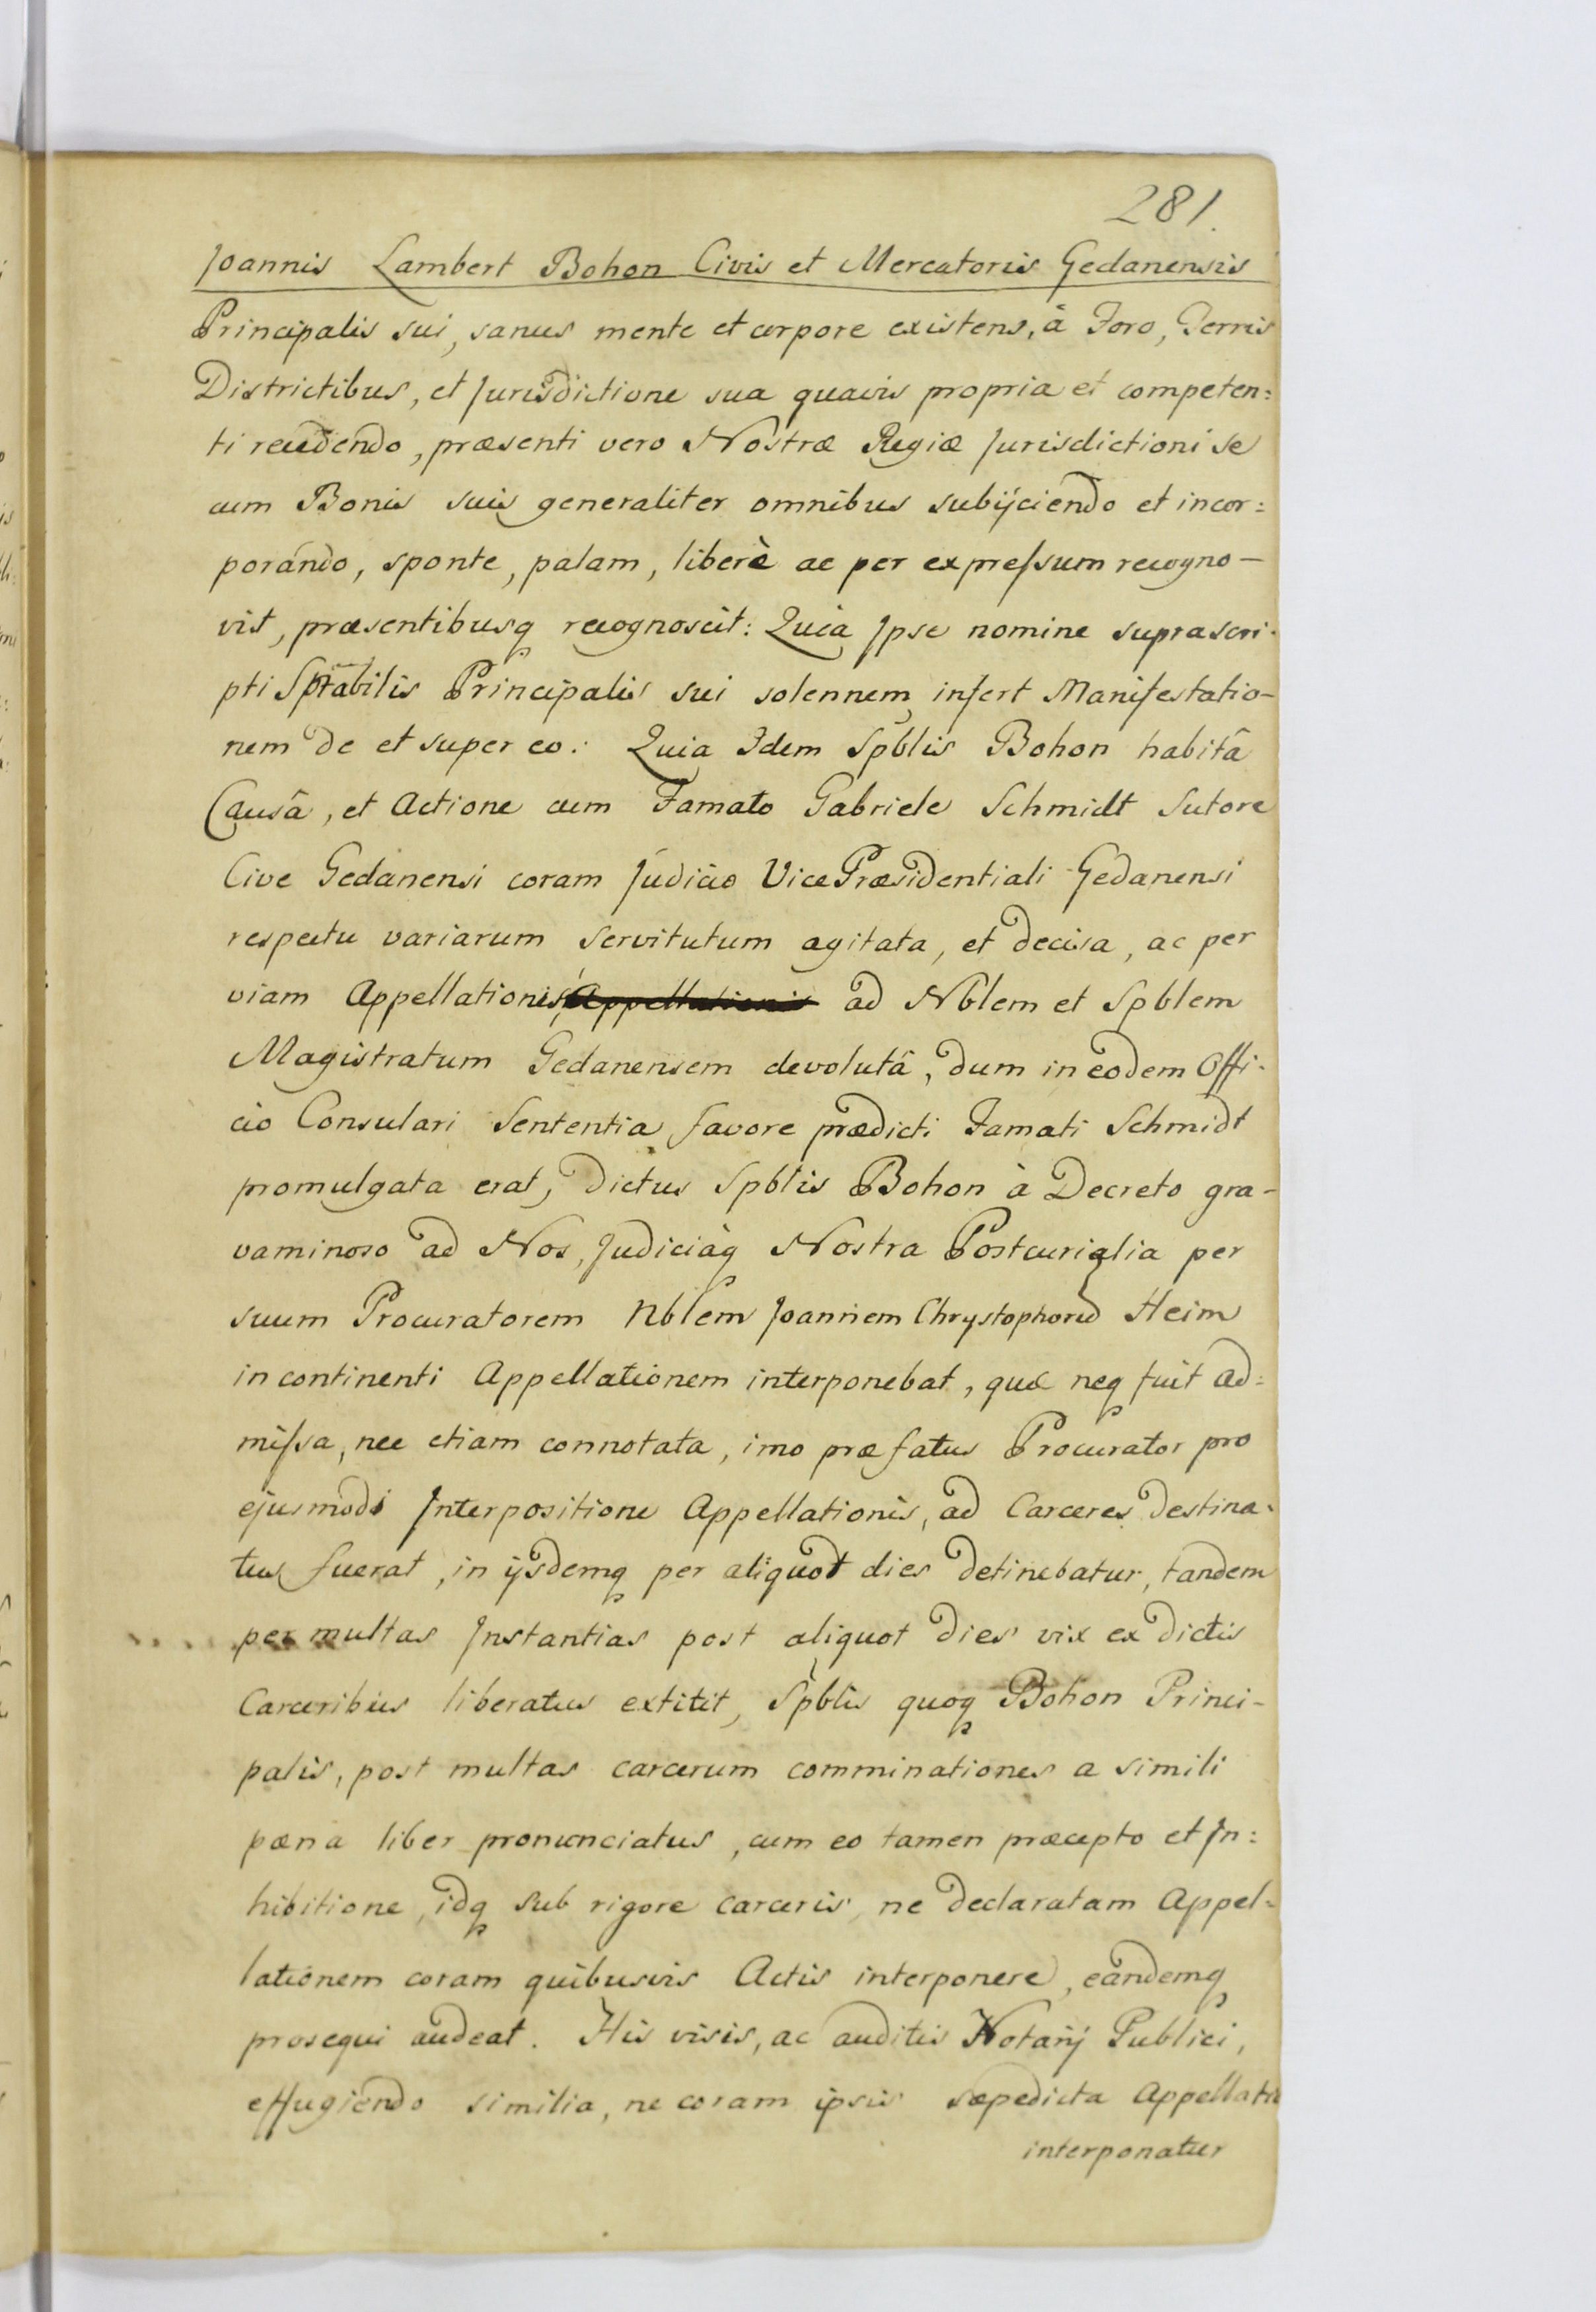 281.
Joannis Lambert Bohon Civis et Mercatoris Gedanensis
Principalis sui, sanus mente et corpore existens, à Foro, Terris
Districtibus, et Jurisdictione sua quavis propria et competen:
ti recedendo, præsenti vero Nostræ Regiæ Jurisdictioni se
cum Bonis suis generaliter omnibus subijciendo et incor:
porando, sponte, palam, liberè ac per expreſsum recogno-
vit, præsentibusq recognoscit: Quia Ipse nomine suprascri-
pti Sptabilis Principalis sui solennem infert Manifestatio-
nem de et super eo: Quia Idem Spblis Bohon habitâ
Causâ, et Actione cum Famato Gabriele Schmidt Sutore
Cive Gedanensi coram Judicio Vice Præsidentiali Gedanensi
respectu variarum servitutum agitata, et decisa, ac per
viam Appellationis, Appellationis ad Nblem et Spblem
Magistratum Gedanensem devolutâ, dum in eodem Offi-
cio Consulari Sententia favore prædicti Famati Schmidt
promulgata erat, dictus Spblis Bohon à Decreto gra-
vaminoso ad Nos, Judiciaq Nostra Postcurialia per
suum Procuratorem Nblem Joannem Chrystophorū Heim
in continenti Appellationem interponebat, quæ neq fuit ad:
miſsa, nec etiam connotata, imo præfatus Procurator pro
ejusmodi Interpositione Appellationis, ad Carceres destina-
tus fuerat, in ijsdemq per aliquot dies detinebatur, tandem
per multas Instantias post aliquot dies vix ex dictis
Carceribus liberatus extitit, Spblis quoq Bohon Princi-
palis, post multas carcerum comminationes a simili
pæna liber pronunciatus, cum eo tamen præcepto et In:
hibitione, idq sub rigore carceris, ne declaratam Appel-
lationem coram quibusvis Actis interponere, eandemq
prosequi audeat. His visis, ac auditis Notarij Publici,
effugiendo similia, ne coram ipsis sæpedicta Appellatio
interponatur